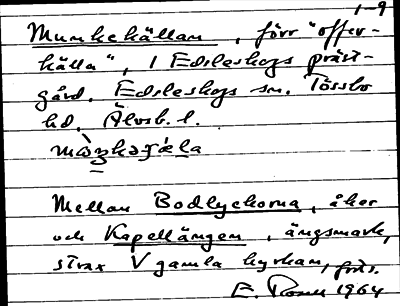 1-9
Munkekällan, förr "offer-
källa", i Edsleskogs präst-
gård. Edsleskogs sn. Tössbo
hd. Älvsb. l.
Mellan Bodlyckorna, åker
och Kapellängen, ängsmark,
strax V gamla kyrkan,
E. 1964